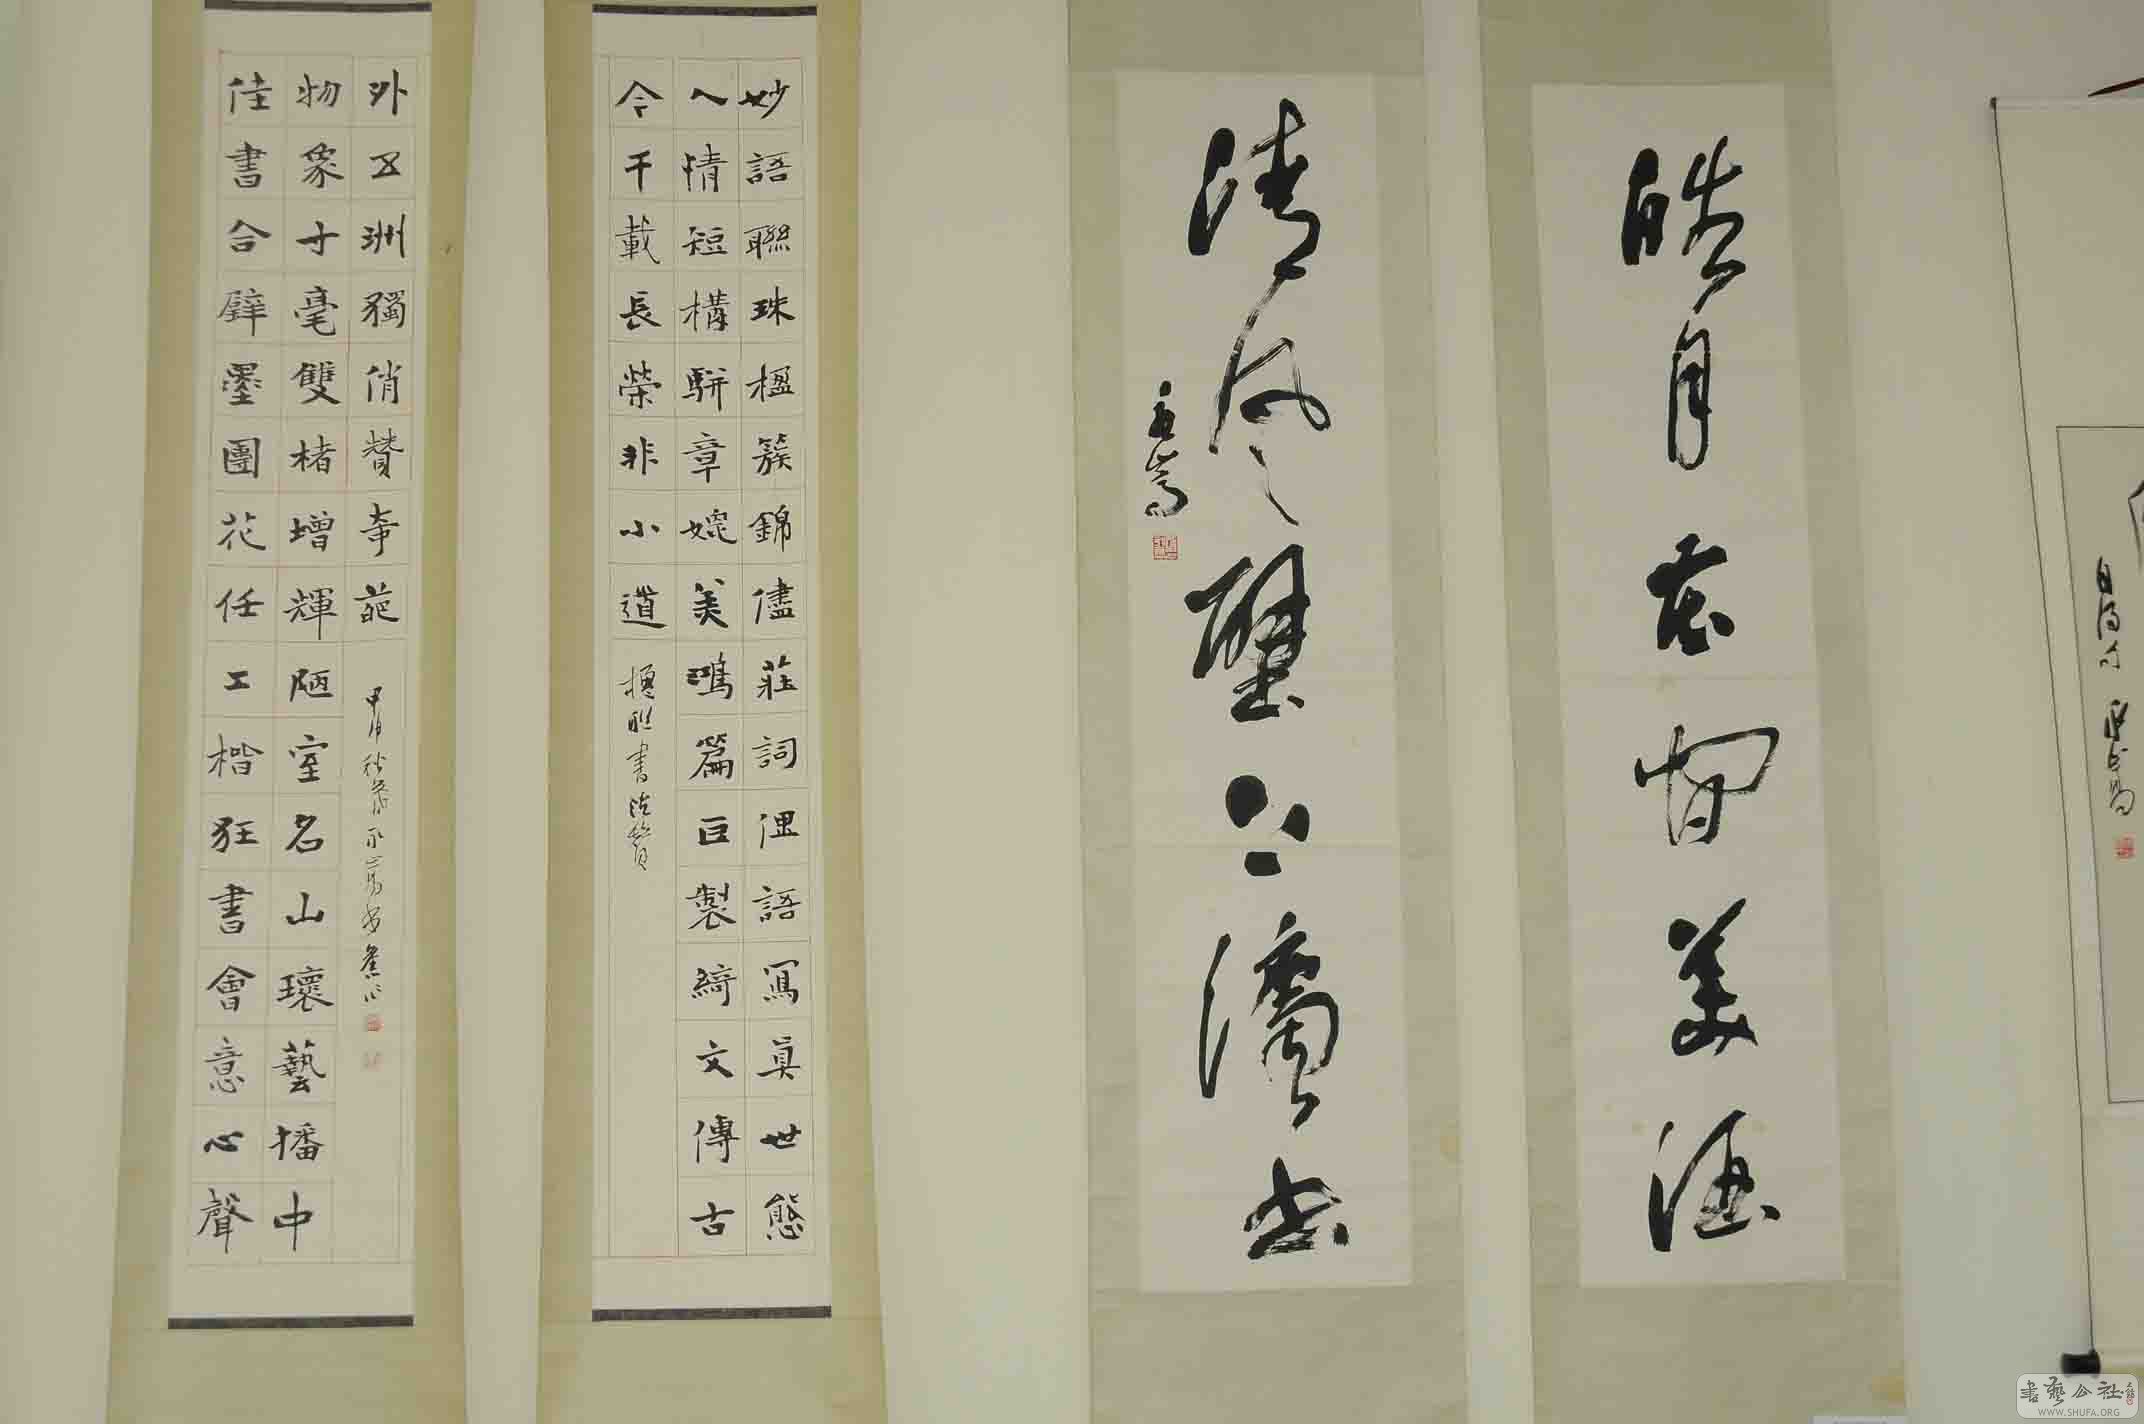 皓月花间美酒
清风壁上濡书
妙語聯珠楹簇錦儘莊詞俚語寫真世態
人情短構駢章姹美鴻篇巨製綺文傳古
今千載長榮非小道
楹联书法赞
佳書合璧墨團花任工楷狂書會意心聲
物象寸毫雙楮增輝陋室名山瓌藝播中
外五洲獨俏贊奇葩
甲申秋
書藝公社
WWW.SHUFA.ORG